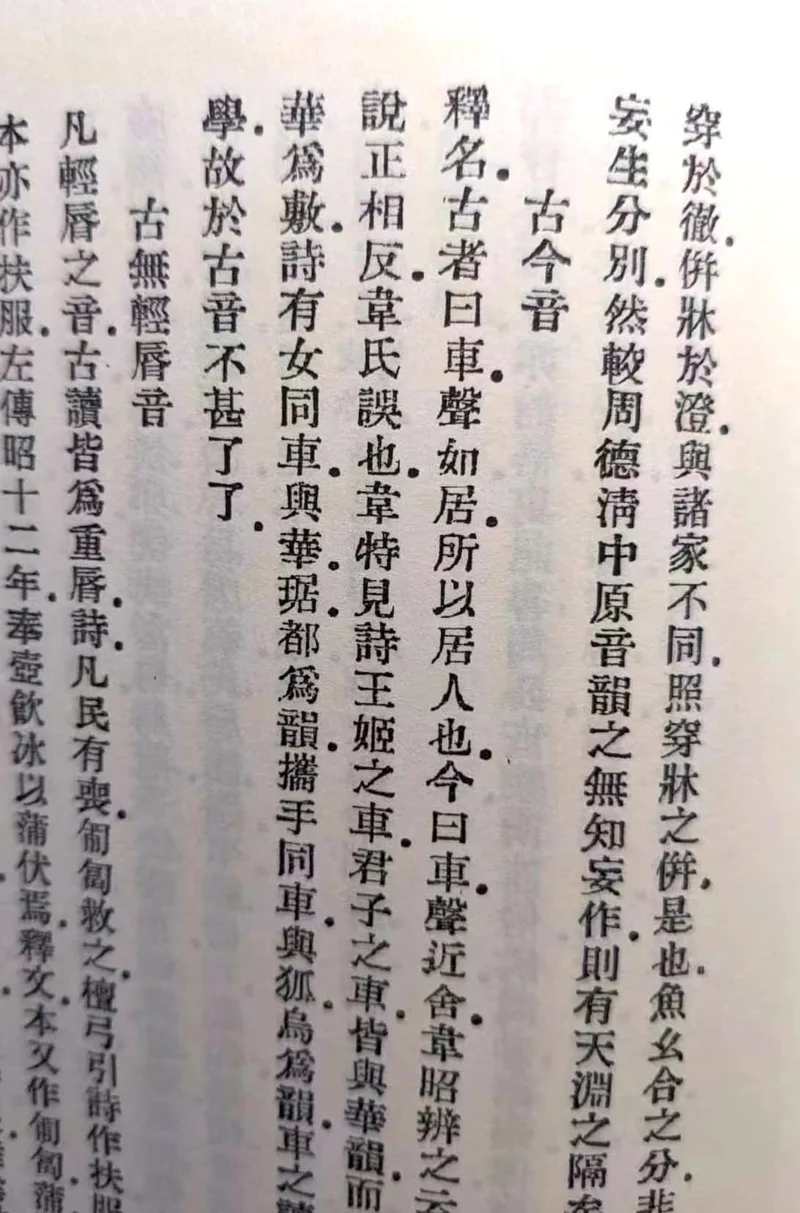 穿於徹.併牀於澄.與諸家不同.照穿牀之併.是也.魚幺合之分.非
妄生分別.然較周德淸中原音韻之無知妄作.則有天淵之隔矣
古今音
釋名.古者曰車.聲如居.所以居人也.今曰車.聲近舍.韋昭辨之云
說正相反.韋氏誤也.韋特見詩王姬之車.君子之車.皆與華韻.而
華爲敷.詩有女同車.與華.琚.都爲韻.攜手同車.與狐.烏爲韻.車之
學.故於古音不甚了了.
古無輕脣音
凡輕脣之音.古讀皆爲重脣.詩.凡民有喪.匍匐救之.檀弓引詩作扶服
本亦作扶服.左傳昭十二年.奉壺飮冰以蒲伏焉.釋文.本又作匍匐.蒲